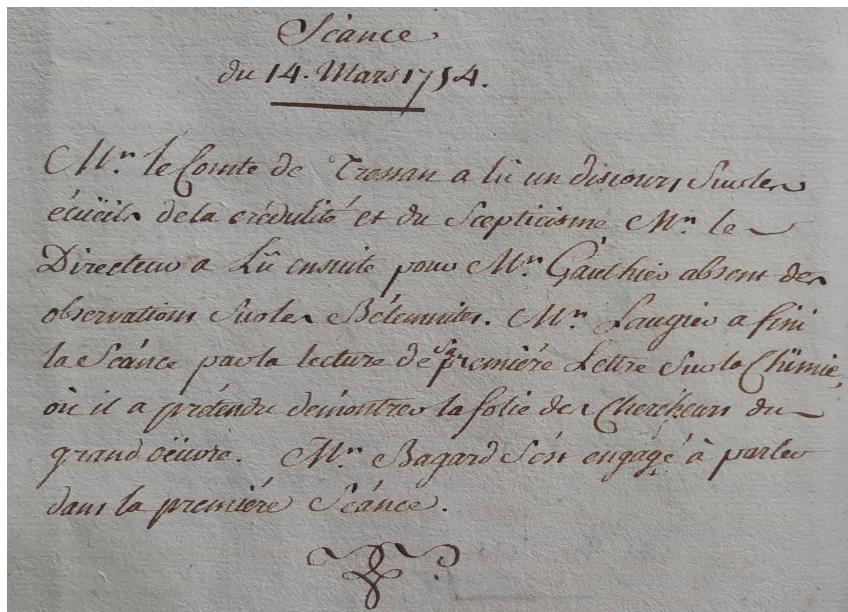 Séance
du 14. Mars 1754.
Mr. le Comte de Tressan a lû un discours Sur les
écüeils de la crédulité et du Scepticisme Mr. le
Directeur a Lû ensuite pour Mr. Gauthier absent des
observations Sur les Bélemnites. Mr. Laugier a fini
la Séance par la lecture de Sa première Lettre Sur la Chÿmie,
où il a prétendu démontrer la folie des Chercheurs du
grand oëüvre. Mr. Bagard S'est engagé à parler
dans la première Séance.